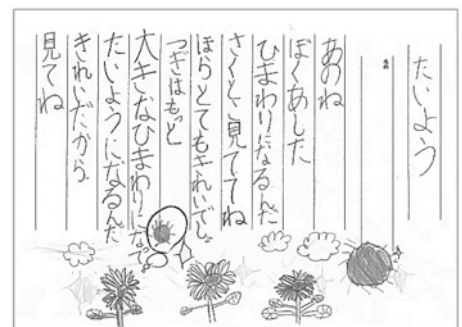 たいよう
あのね
ぼくあした
ひまわりになるんだ
さくとこ見ててね
ほらとてもきれいでしょ
つぎはもっと
大きなひまわりになって
たいようになるんだ
きれいだから
見てね